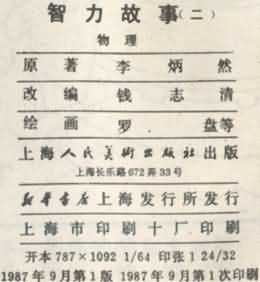 智力故事(二)
物理
原著 李炳然
改编 钱志清
绘画 罗盘等
上海人民美術出版社出版
上海长乐路672弄33号
新华书店上海发行所发行
上海市印刷十厂印刷
开本787×1092 1/64 印张1 24/32
1987年9月第1版 1987年9月第1次印刷